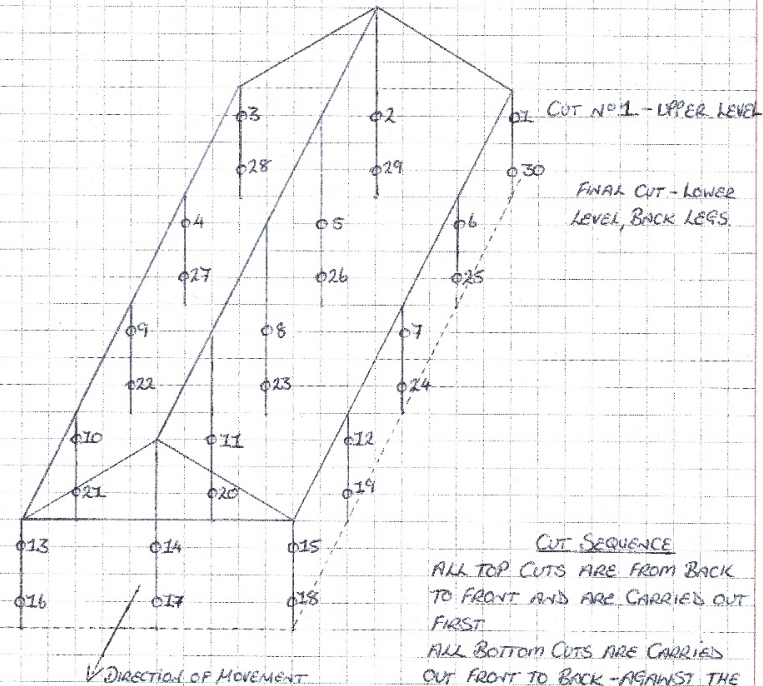 3
2
1 CUT Nº1 - UPPER LEVEL
28
29
30
FINAL CUT - LOWER
LEVEL, BACK LEGS.
4
5
6
27
26
25
9
8
7
22
23
24
10
11
12
21
20
19
13
14
15
16
17
18
CUT SEQUENCE
ALL TOP CUTS ARE FROM BACK
TO FRONT AND ARE CARRIED OUT
FIRST
ALL BOTTOM CUTS ARE CARRIED
OUT FRONT TO BACK - AGAINST THE
DIRECTION OF MOVEMENT